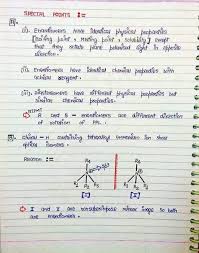 SPECIAL POINTS :-
(i). Enantiomers have identical physical properties
[Boiling point, Melting point, solubility] except
that they rotate plane polarised light in opposite
direction.
(ii). Enantiomers have identical chemical properties with
achiral reagent.
(iii). Diastereomers have different physical properties but
similar chemical properties.
R and S = enantiomers are different direction
of rotation of PPL.
Chiral = containing tetrahedral
optical isomers.
Reason :-
R1
R1
R2
R3
R3
R2
[I]
[II]
I and II are nonsuperimpose mirror image so both
are enantiomers.